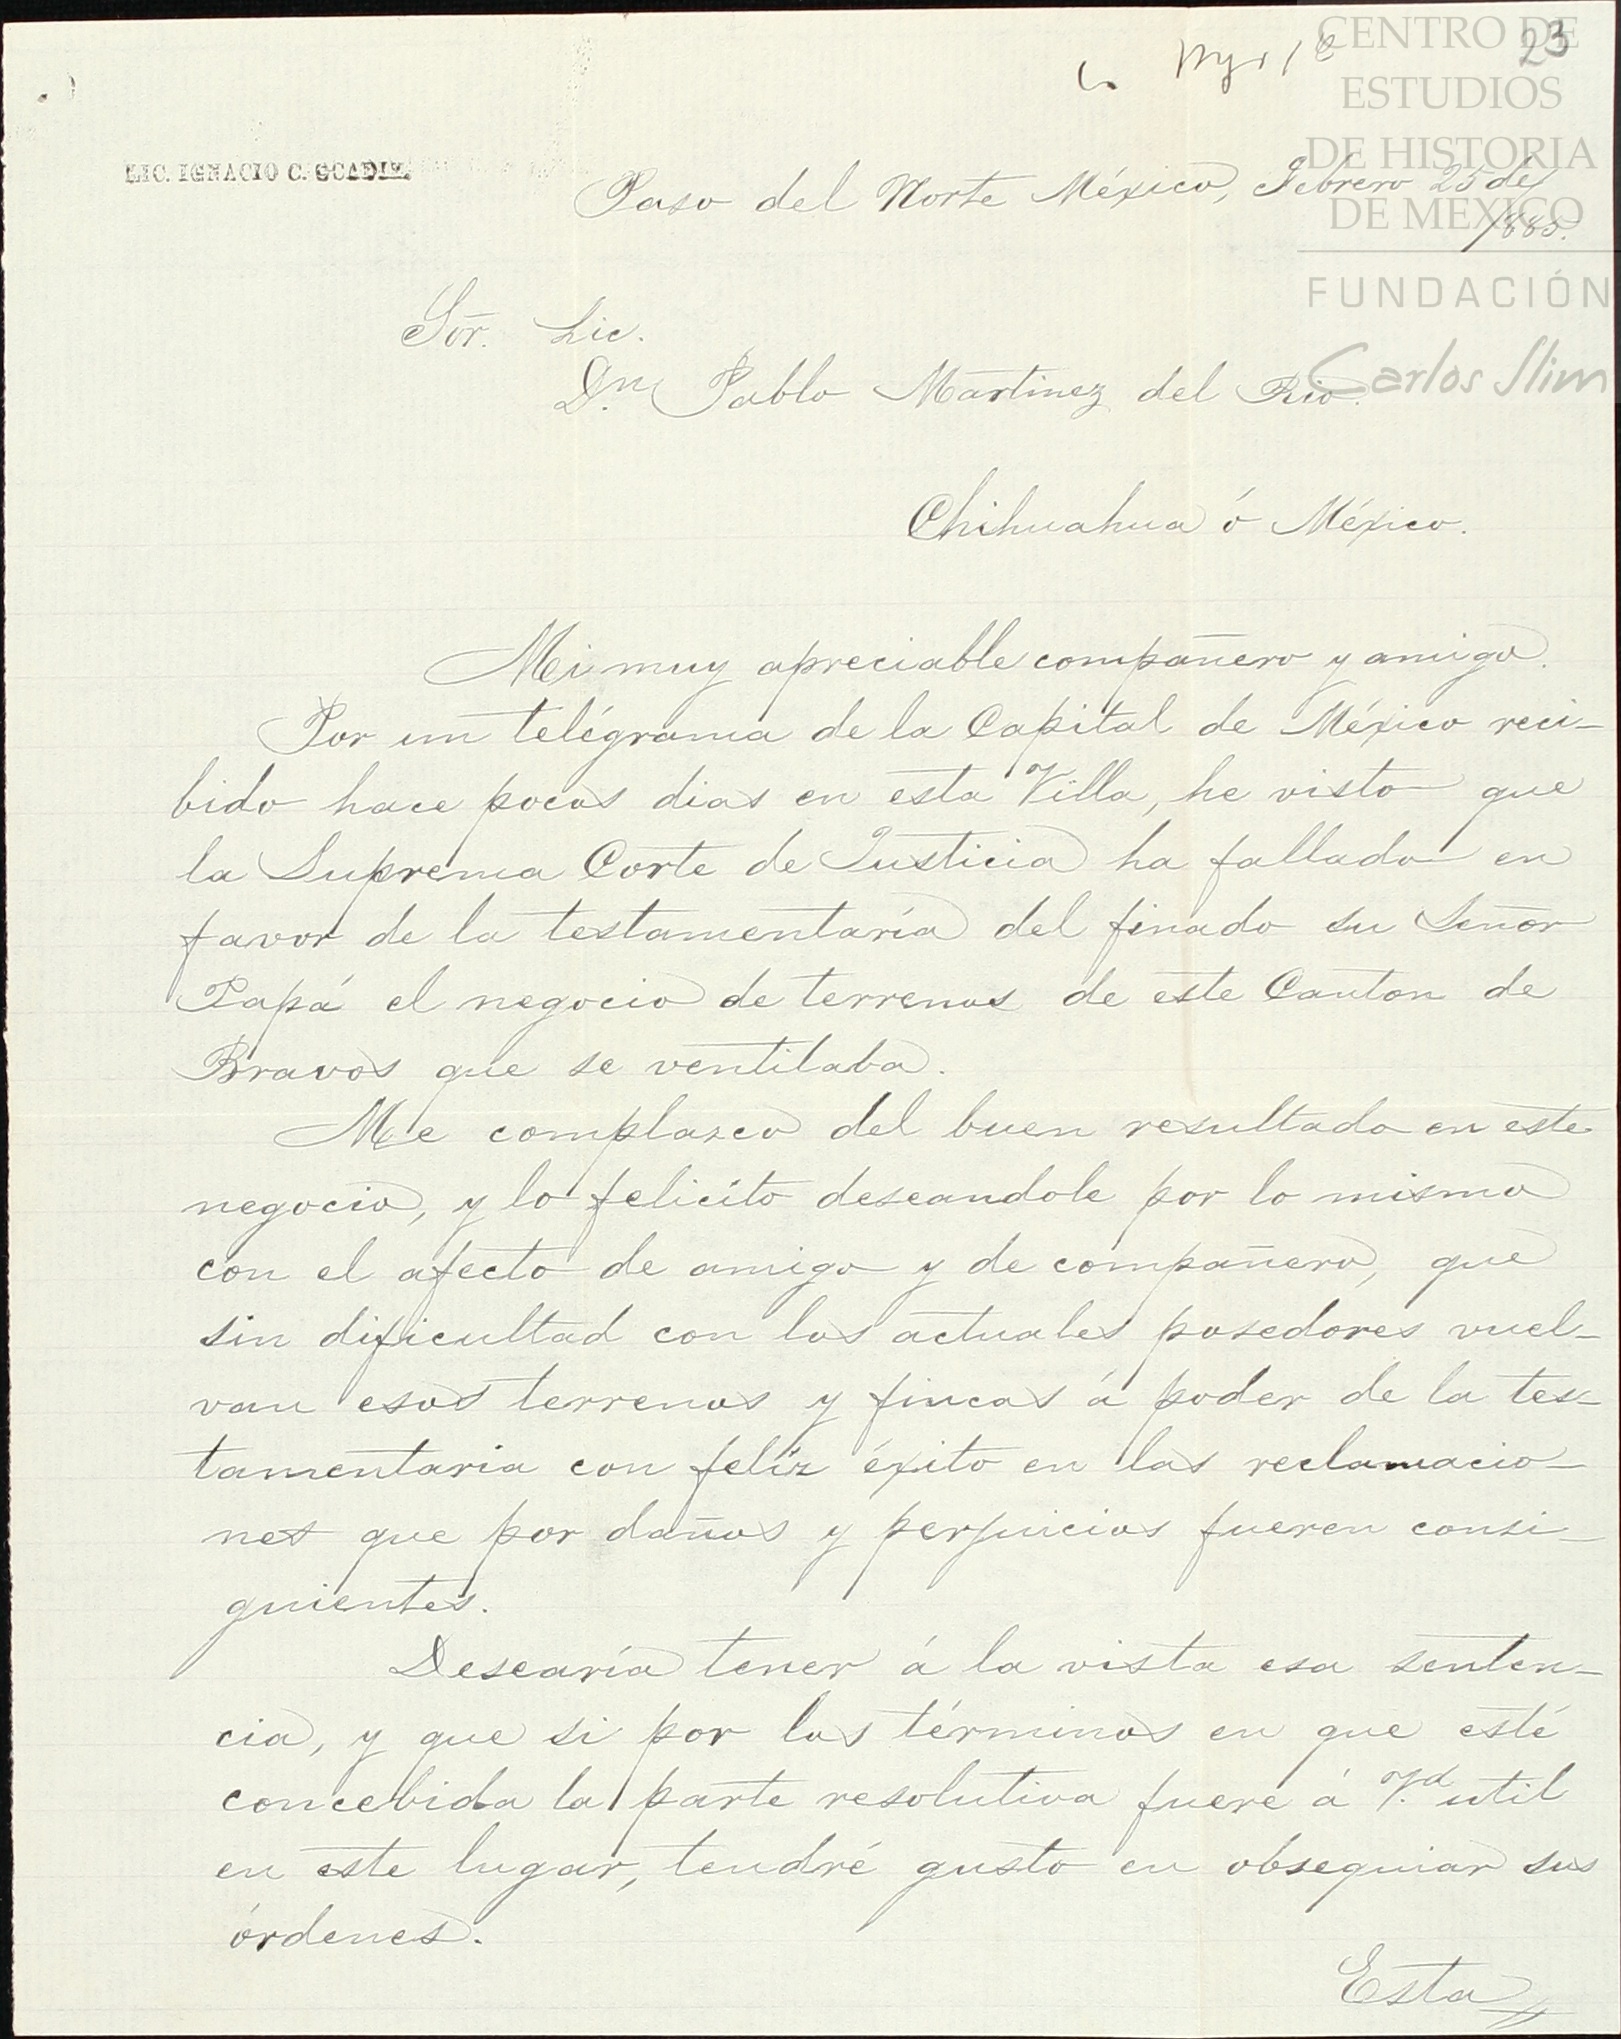 23
CENTRO DE
ESTUDIOS
DE HISTORIA
DE MEXICO
FUNDACIÓN
Carlos Slim
LIC. IGNACIO C.
Paso del Norte México, Febrero 25 de
1885.
Sōr. Lic.
Dn. Pablo Martinez del Rio.
Chihuahua ó México.
Mi muy apreciable compañero y amigo.
Por un telégrama de la Capital de México reci-
bido hace pocos dias en esta Villa, he visto que
la Suprema Corte de Justicia ha fallado en
favor de la testamentaría del finado su Señor
Papá el negocio de terrenos de este Canton de
Bravos que se ventilaba.
Me complasco del buen resultado en este
negocio, y lo felicíto deseandole por lo mismo
con el afecto de amigo y de compañero, que
sin dificultad con los actuales posedores vuel-
van esos terrenos y fincas á poder de la tes-
tamentaria con felíz éxito en las reclamacio-
nes que por daños y perjuicios fueren consi-
guientes.
Desearía tener á la vista esa senten-
cia, y que si por los términos en que esté
concebida la parte resolutiva fuere á Vd. util
en este lugar, tendré gusto en obsequiar sus
órdenes.
Esta